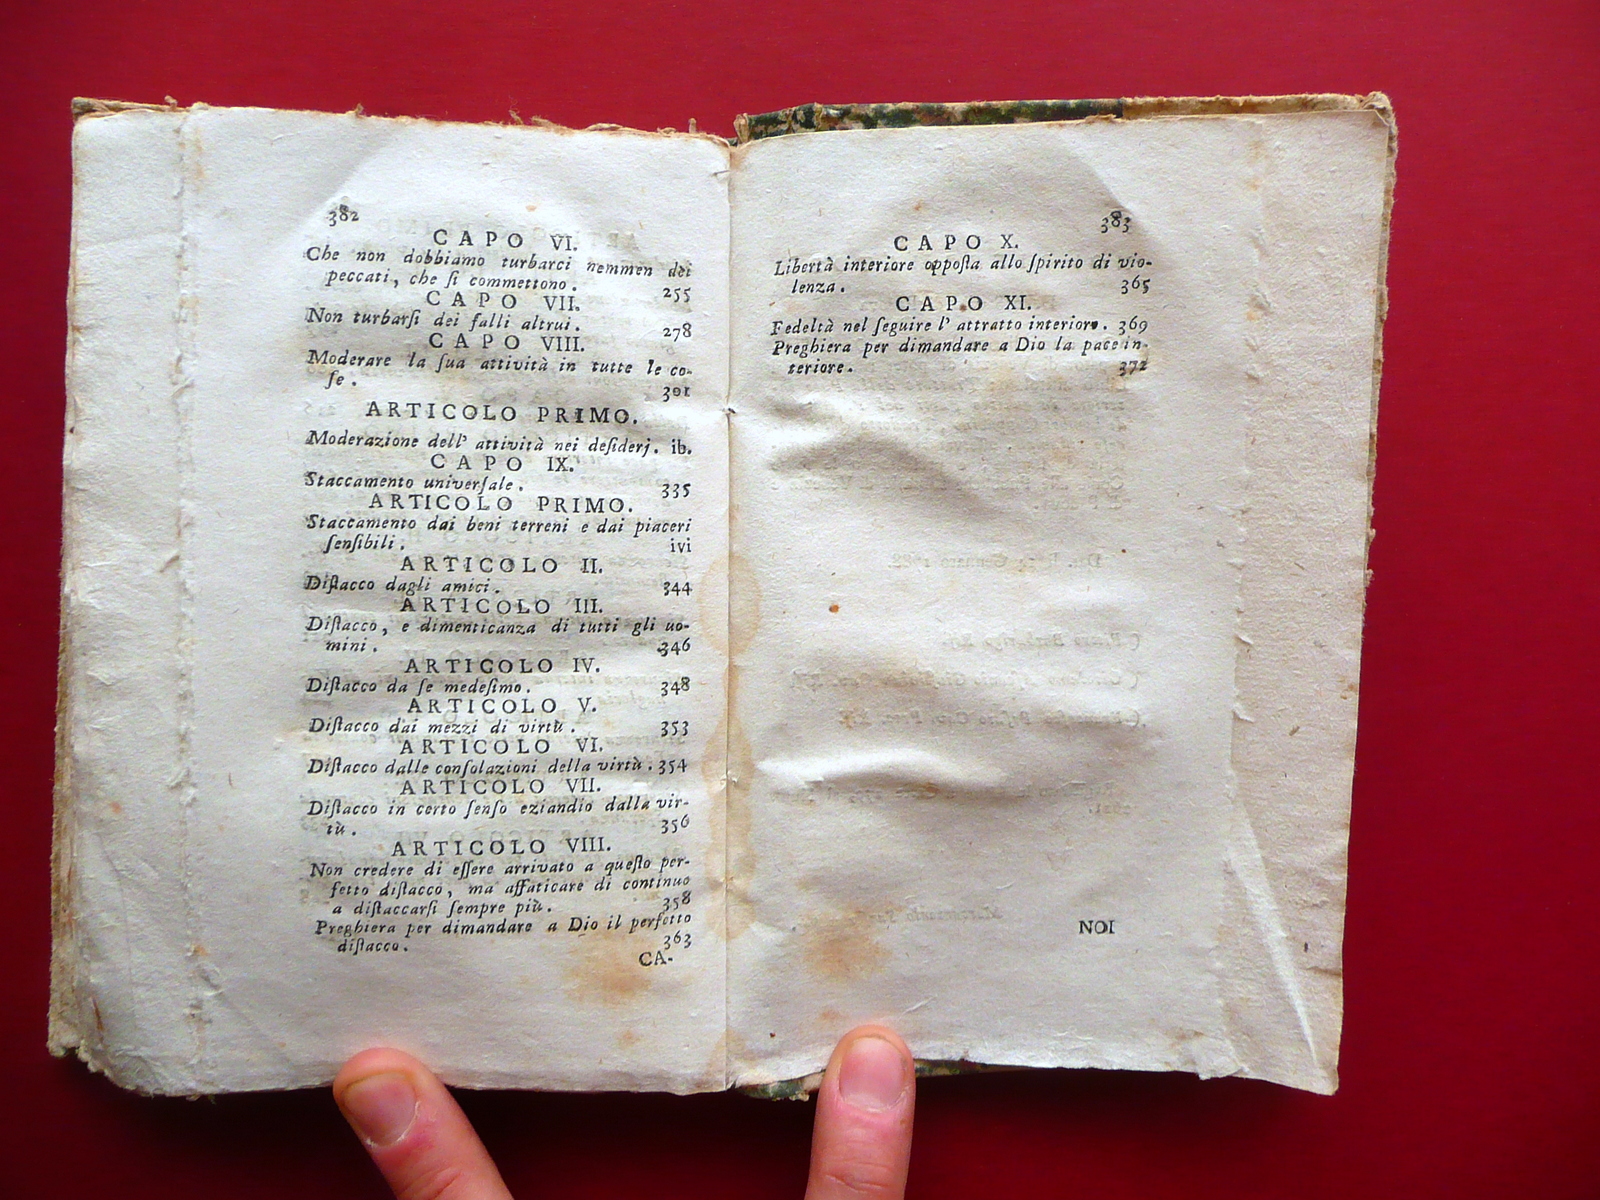 382
CAPO VI.
Che non dobbiamo turbarci nemmen dei
peccati, che ſi commettono. 255
CAPO VII.
Non turbarſi dei falli altrui. 278
CAPO VIII.
Moderare la ſua attività in tutte le co-
ſe. 301
ARTICOLO PRIMO.
Moderazione dell' attività nei deſiderj. ib.
CAPO IX.
Staccamento univerſale. 335
ARTICOLO PRIMO.
Staccamento dai beni terreni e dai piaceri
ſenſibili. ivi
ARTICOLO II.
Diſtacco dagli amici. 344
ARTICOLO III.
Diſtacco, e dimenticanza di tutti gli uo-
mini. 346
ARTICOLO IV.
Diſtacco da ſe medeſimo. 348
ARTICOLO V.
Diſtacco dai mezzi di virtù. 353
ARTICOLO VI.
Diſtacco dalle conſolazioni della virtù. 354
ARTICOLO VII.
Diſtacco in certo ſenſo eziandio dalla vir-
tù. 356
ARTICOLO VIII.
Non credere di eſſere arrivato a queſto per-
fetto diſtacco, ma affaticare di continuo
a diſtaccarſi ſempre più. 358
Preghiera per dimandare a Dio il perfetto
diſtacco. 363
CA-
383
CAPO X.
Libertà interiore oppoſta allo ſpirito di vio-
lenza. 365
CAPO XI.
Fedeltà nel ſeguire l' attratto interiore. 369
Preghiera per dimandare a Dio la pace in-
teriore. 372
NOI